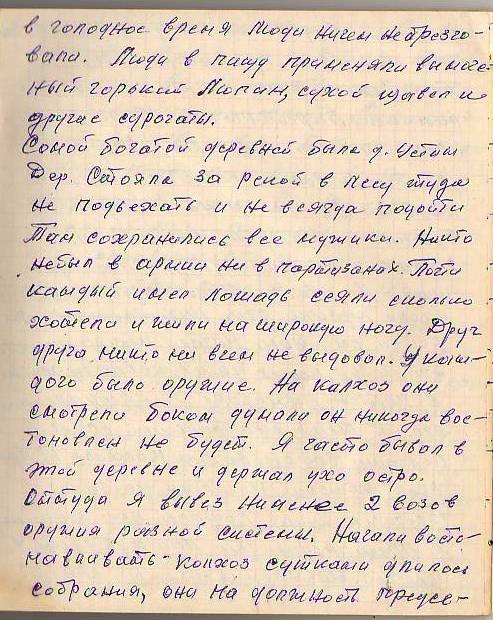 в голодное время люди ничем не брезго-
вали. Люди в пищу применяли вымоче-
ный горький Люпин, сухой щавел и
другие сурогаты.
Самой богатой деревней была д. Устин
Дер. Стояла за рекой в лесу туда
не подьехать и не всягда подойти
Там сохранились все мужики. Никто
небыл в армии ни в партизанах. Почти
каждый имел лошадь сеяли сколько
хотели и жили на широкую ногу. Друг
друга никто ни вчем не выдовал. У каж-
дого было оружие. На калхоз они
смотрели боком думали он никогда вос-
тоновлен не будет. Я часто бывал в
этой деревне и держал ухо остро.
Оттуда я вывез неменее 2 возов
оружия разной системы. Начали восто-
навливать колхоз сутками длилось
собрания, они на должность предсе-